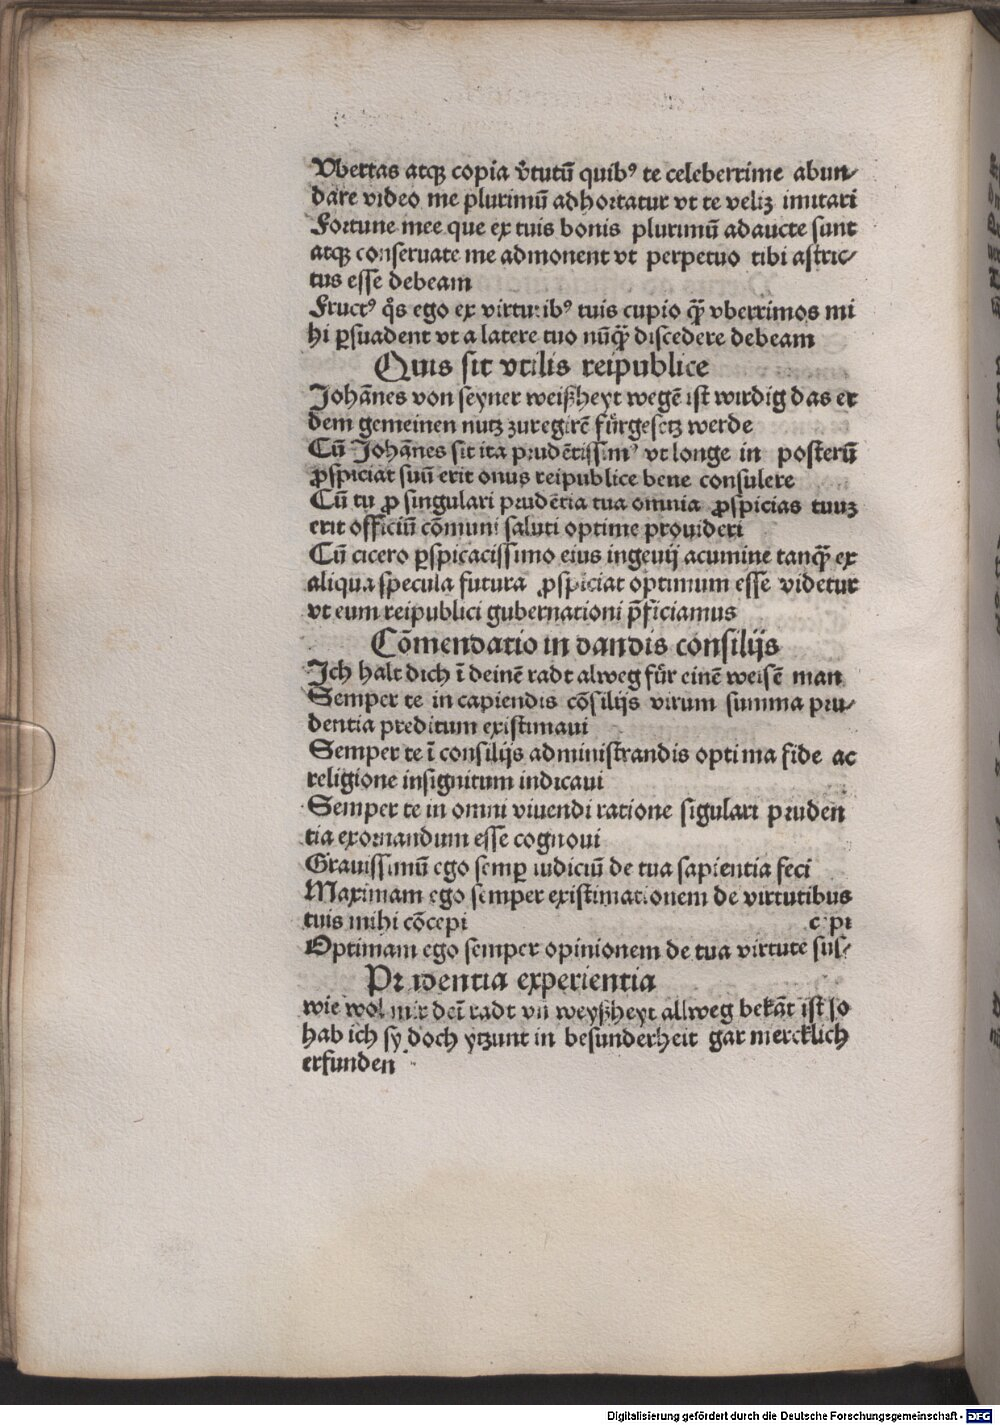 Vbertas atqꝫ copia v̓tutū quibꝰ te celeberrime abun⸗
dare video me plurimū adhortatur vt te veliꝫ imitari
Fortune mee que ex tuis bonis plurimū adaucte sunt
atqꝫ conseruate me admonent vt perpetuo tibi astric⸗
tus esse debeam
Fructꝰ q̊s ego ex virtutibꝰ tuis cupio qꝫ̄ vberrimos mi
hi ꝑsuadent vt a latere tuo nūqꝫ̄ discedere debeam
Quis sit vtilis reipublice
Johānes von seyner weißheyt wegē ist wirdig das er
dem gemeinen nutz zuregirē fürgesetz werde
Cū Johānes sit ita prudētissimꝰ vt longe in posterū
ꝓspiciat suū erit onus reipublice bene consulere
Cū tu ꝓ singulari prudētia tua omnia ꝓspicias tuuꝫ
erit officiū cōmuni saluti optime prouideri
Cū cicero ꝑspicacissimo eius ingeuij acumine tanqꝫ̄ ex
aliqua specula futura ꝓspiciat optimum esse videtur
vt eum reipublici gubernationi p̄ficiamus
Cōmendatio in dandis consilijs
Ich halt dich ī deinē radt alweg für einē weisē man
Semper te in capiendis cōsilijs virum summa pru⸗
dentia preditum existimaui
Semper te ī consilijs administrandis optima fide ac
religione insignitum indicaui
Semper te in omni viuendi ratione sigulari pruden
tia exornandum esse cognoui
Grauissimū ego semꝑ iudiciū de tua sapientia feci
Maximam ego semper existimationem de virtutibus
tuis mihi cōcepi cepi
Optimam ego semper opinionem de tua virtute sus⸗
Prudentia experientia
wie wol mir deī radt vn̄ weyßheyt allweg bekāt ist so
hab ich sy doch ytzunt in besunderheit gar mercklich
erfunden
Digitalisierung gefördert durch die Deutsche Forschungsgemeinschaft - DFG